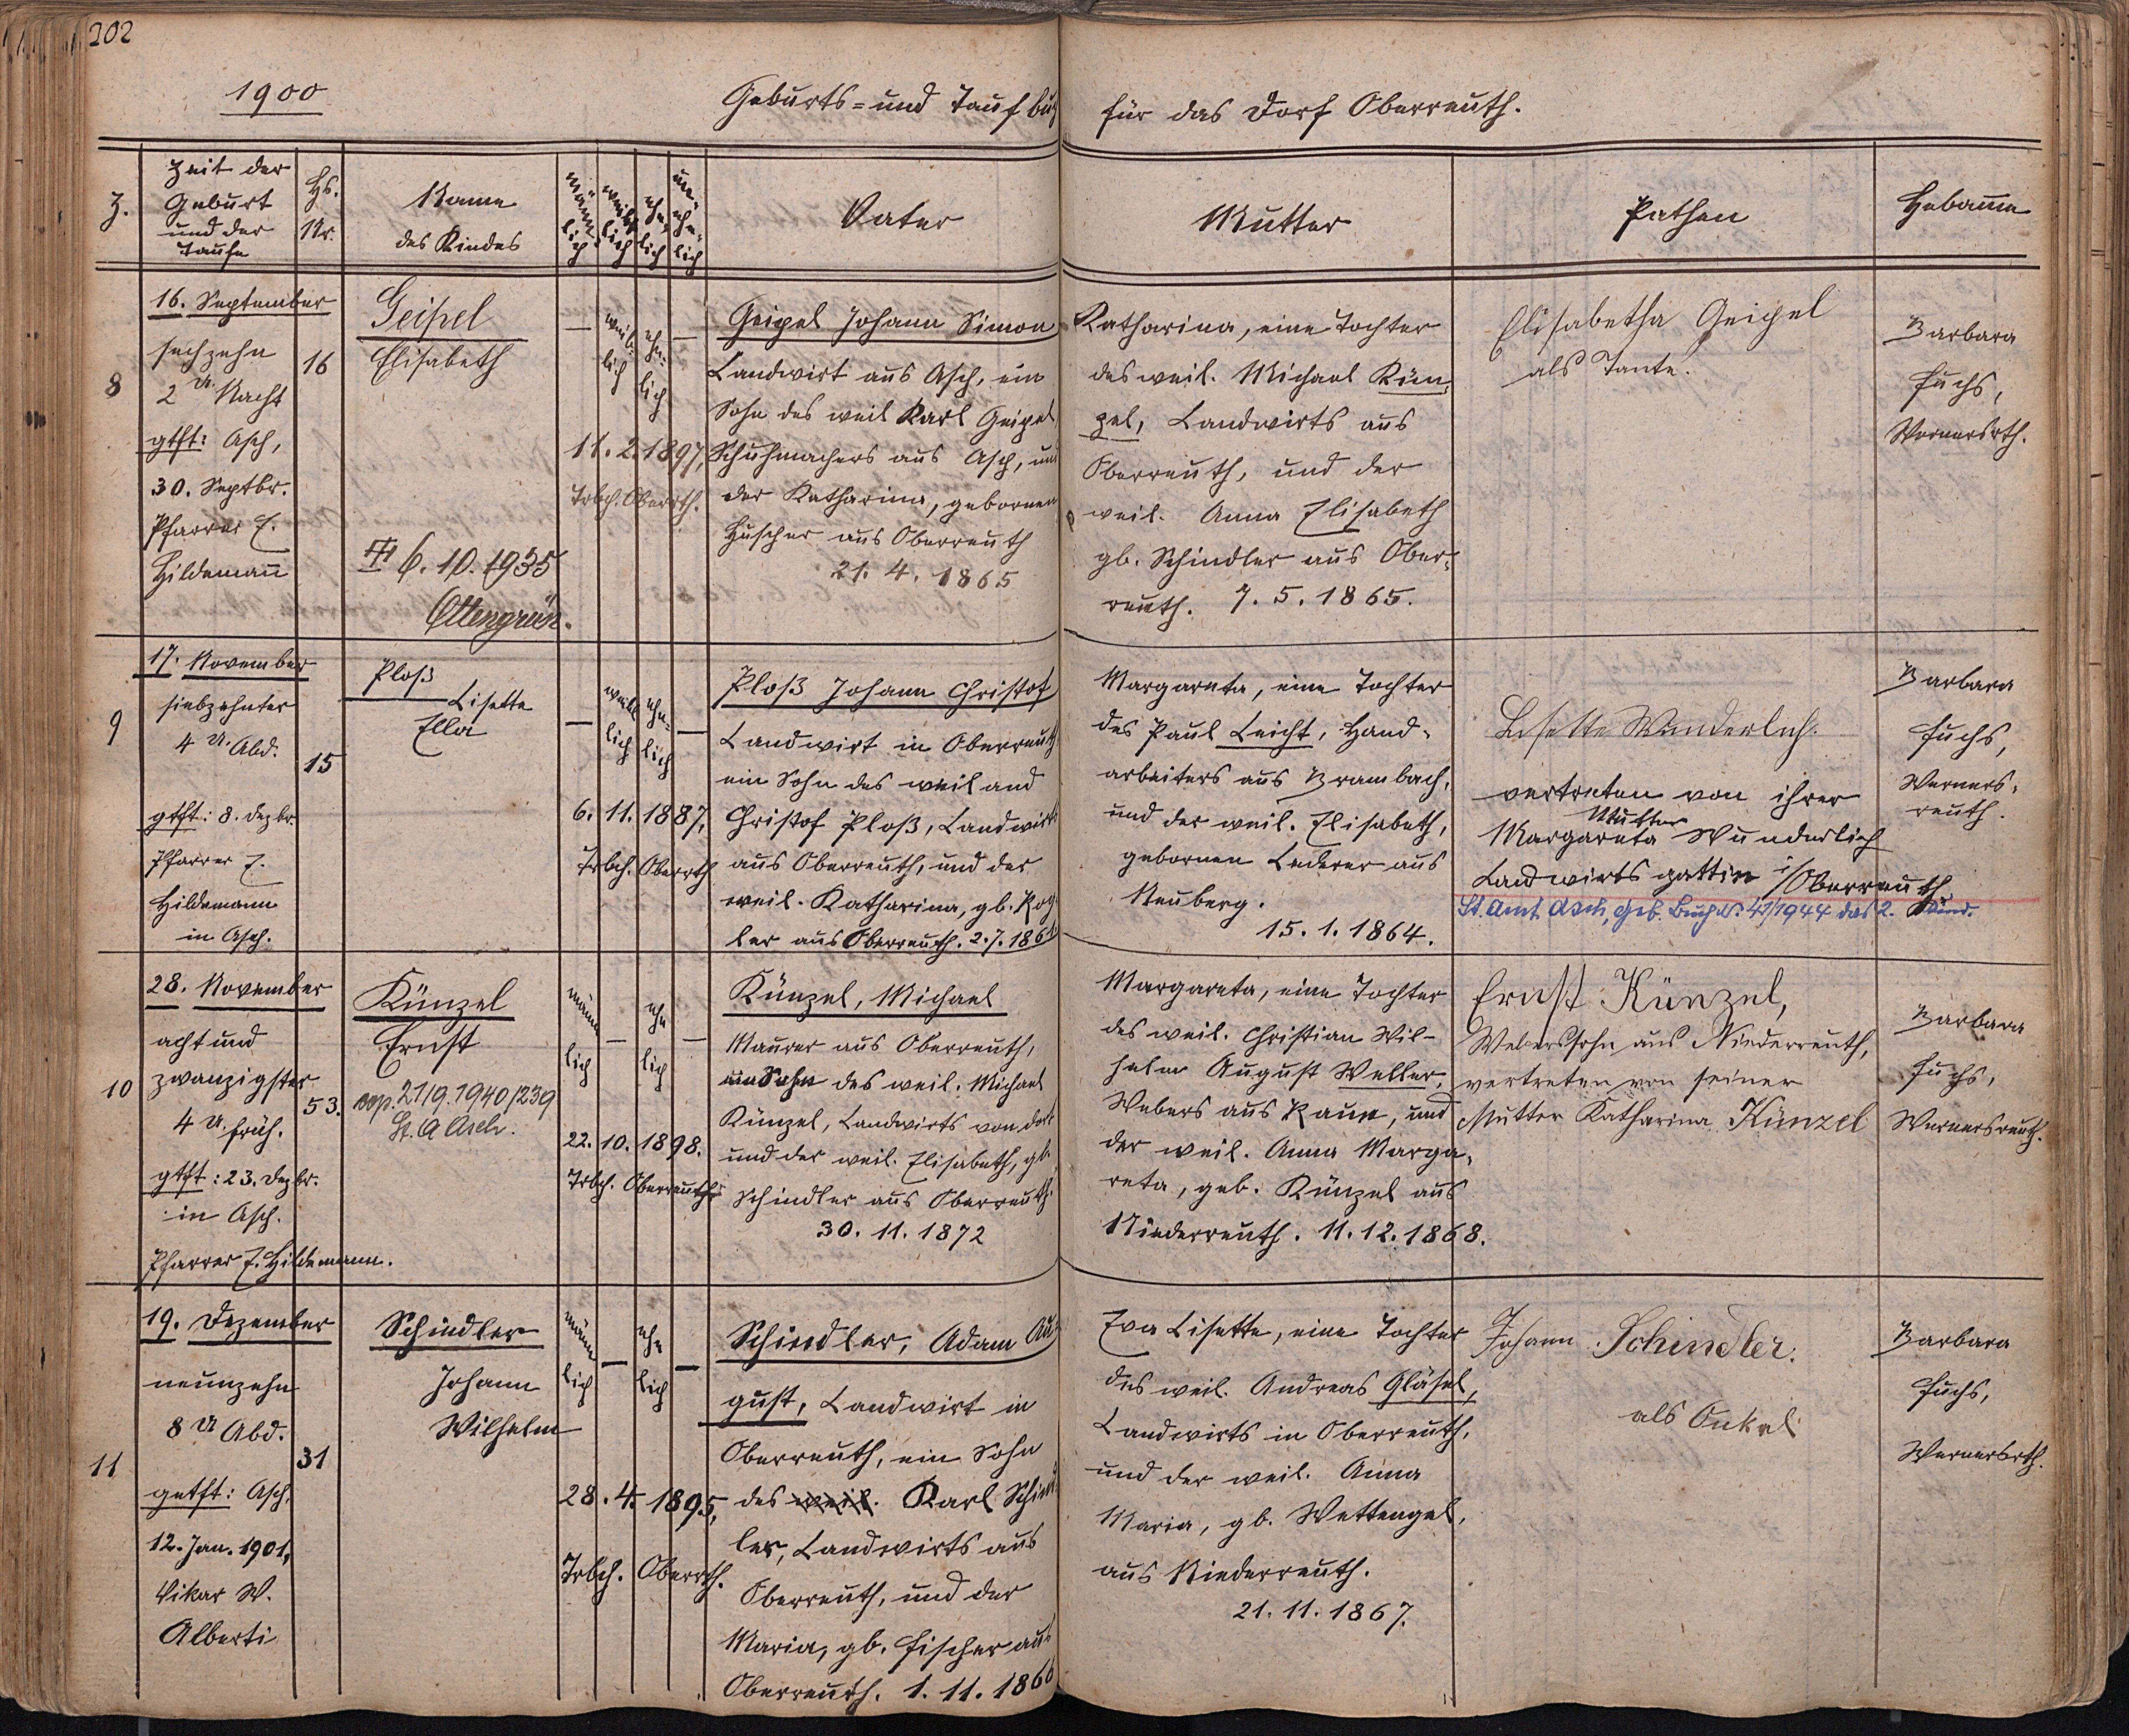 202
1900
Geburts- und Taufbuch
für das Dorf Oberreuth.
Z.
Zeit der
Geburt
und der
Taufe
Hs.
Nr.
Name
des Kindes
männ
lich
weib
lich
ehe
lich
un-
ehe-
lich
Vater
Mutter
Pathen
Hebamme
8
16. September
sechzehn
2 U. Nacht
gtft: Asch,
30. Septbr.
Pfarrer E.
Hildemann
16
Geipel
Elisabeth
6. 10. 1935
Ottengrün.
—
weib-
lich
ehe-
lich
—
11. 2. 1897,
Trbch. Oberrth.
Geipel Johann Simon
Landwirt aus Asch, ein
Sohn des weil Karl Geipel
Schuhmachers aus Asch, und
der Katharina, gebornen
Huscher aus Oberreuth
21. 4. 1865
Katharina, eine Tochter
des weil. Michael Kün-
zel, Landwirts aus
Oberreuth, und der
weil. Anna Elisabeth
gb. Schindler aus Ober-
reuth. 7. 5. 1865.
Elisabetha Geipel
als Tante.
Barbara
Fuchs,
Wernersrth.
9
17. November
siebzehnter
4 U. Abd.
gtft: 8. Dezbr.
Pfarrer E.
Hildemann
in Asch.
15
Ploß
Lisette
Ella
—
weib
lich
ehe-
lich
—
6. 11. 1887,
Trbch. Oberrth
Ploß Johann Christof
Landwirt in Oberreuth
ein Sohn des weiland
Christof Ploß, Landwirts
aus Oberreuth, und der
weil. Katharina, gb. Rog-
ler aus Oberreuth. 2. 7. 186
Margareta, eine Tochter
des Paul Leicht, Hand-
arbeiters aus Brambach,
und der weil. Elisabeth,
gebornen Lederer aus
Neuberg.
15. 1. 1864.
Lisette Wunderlich.
vertreten von ihrer
Mutter
Margareta Wunderlich
Landwirts gattin i/Oberreuth.
St. Amt Asch, Geb. Buch Nr. 41/1944 das 2. Kind.
Barbara
Fuchs,
Werners-
reuth.
10
28. November
acht und
zwanzigster
4 U. früh.
gtft: 23. Dezbr.
in Asch.
Pfarrer E. Hildemann.
53.
Künzel
Ernst
cop. 21/9. 1940/239
St. A Asch.
männ
lich
—
ehe
lich
—
22. 10. 1898.
Trbch. Oberreuth
Künzel, Michael
Maurer aus Oberreuth,
ein Sohn des weil. Michael
Künzel, Landwirts von dort
und der weil. Elisabeth, gb.
Schindler aus Oberreuth.
30. 11. 1872
Margareta, eine Tochter
des weil. Christian Wil-
helm August Weller,
Webers aus Raun, und
der weil. Anna Marga-
reta, geb. Künzel aus
Niederreuth. 11. 12. 1868.
Ernst Künzel,
Weberssohn aus Niederreuth,
vertreten von seiner
Mutter Katharina Künzel
Barbara
Fuchs,
Wernersreuth.
11
19. Dezember
neunzehn
8 U Abd.
getft: Asch,
12. Jan. 1901,
Vikar W.
Alberti
31
Schindler
Johann
Wilhelm
männ
lich
—
ehe
lich
—
28. 4. 1895,
Trbch. Oberrth.
Schindler, Adam Au-
gust, Landwirt in
Oberreuth, ein Sohn
des weil. Karl Schind
ler, Landwirts aus
Oberreuth, und der
Maria, gb. Fischer aus
Oberreuth. 1. 11. 186
Eva Lisette, eine Tochter
des weil. Andreas Gläsel,
Landwirts in Oberreuth,
und der weil. Anna
Maria, gb. Wettengel,
aus Niederreuth.
21. 11. 1867.
Johann Schindler.
als Onkel
Barbara
Fuchs,
Wernersrth.